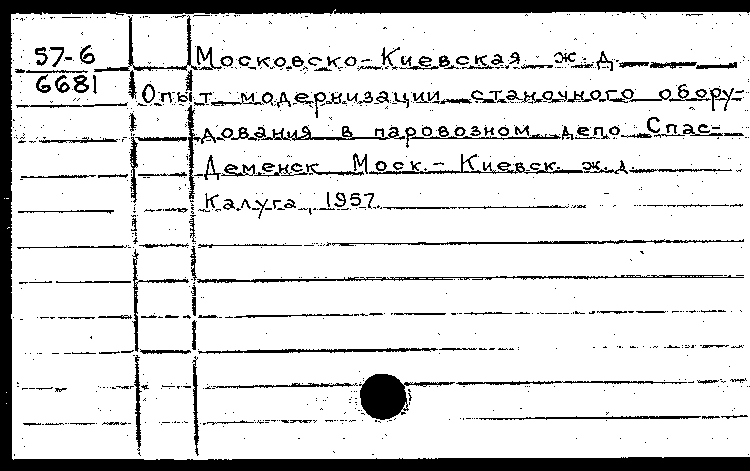 57-6
6681
Московско-Киевская ж.д.
Опыт модернизации станочного обору-
дования в паровозном депо Спас-
Деменск Моск.-Киевск. ж.д.
Калуга, 1957.